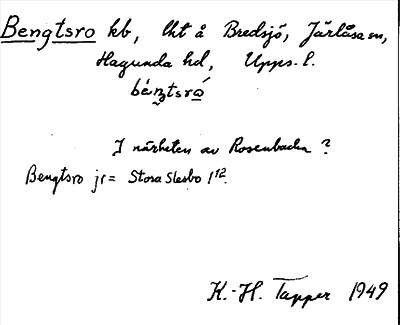 Bengtsro kb, lht å Bredsjö, Järlåsa sn,
Hagunda hd, Upps. l.
I närheten av Rosenbacka ?
Bengtsro jr = Stora Slesbo 1¹².
K.-H. Tapper 1949